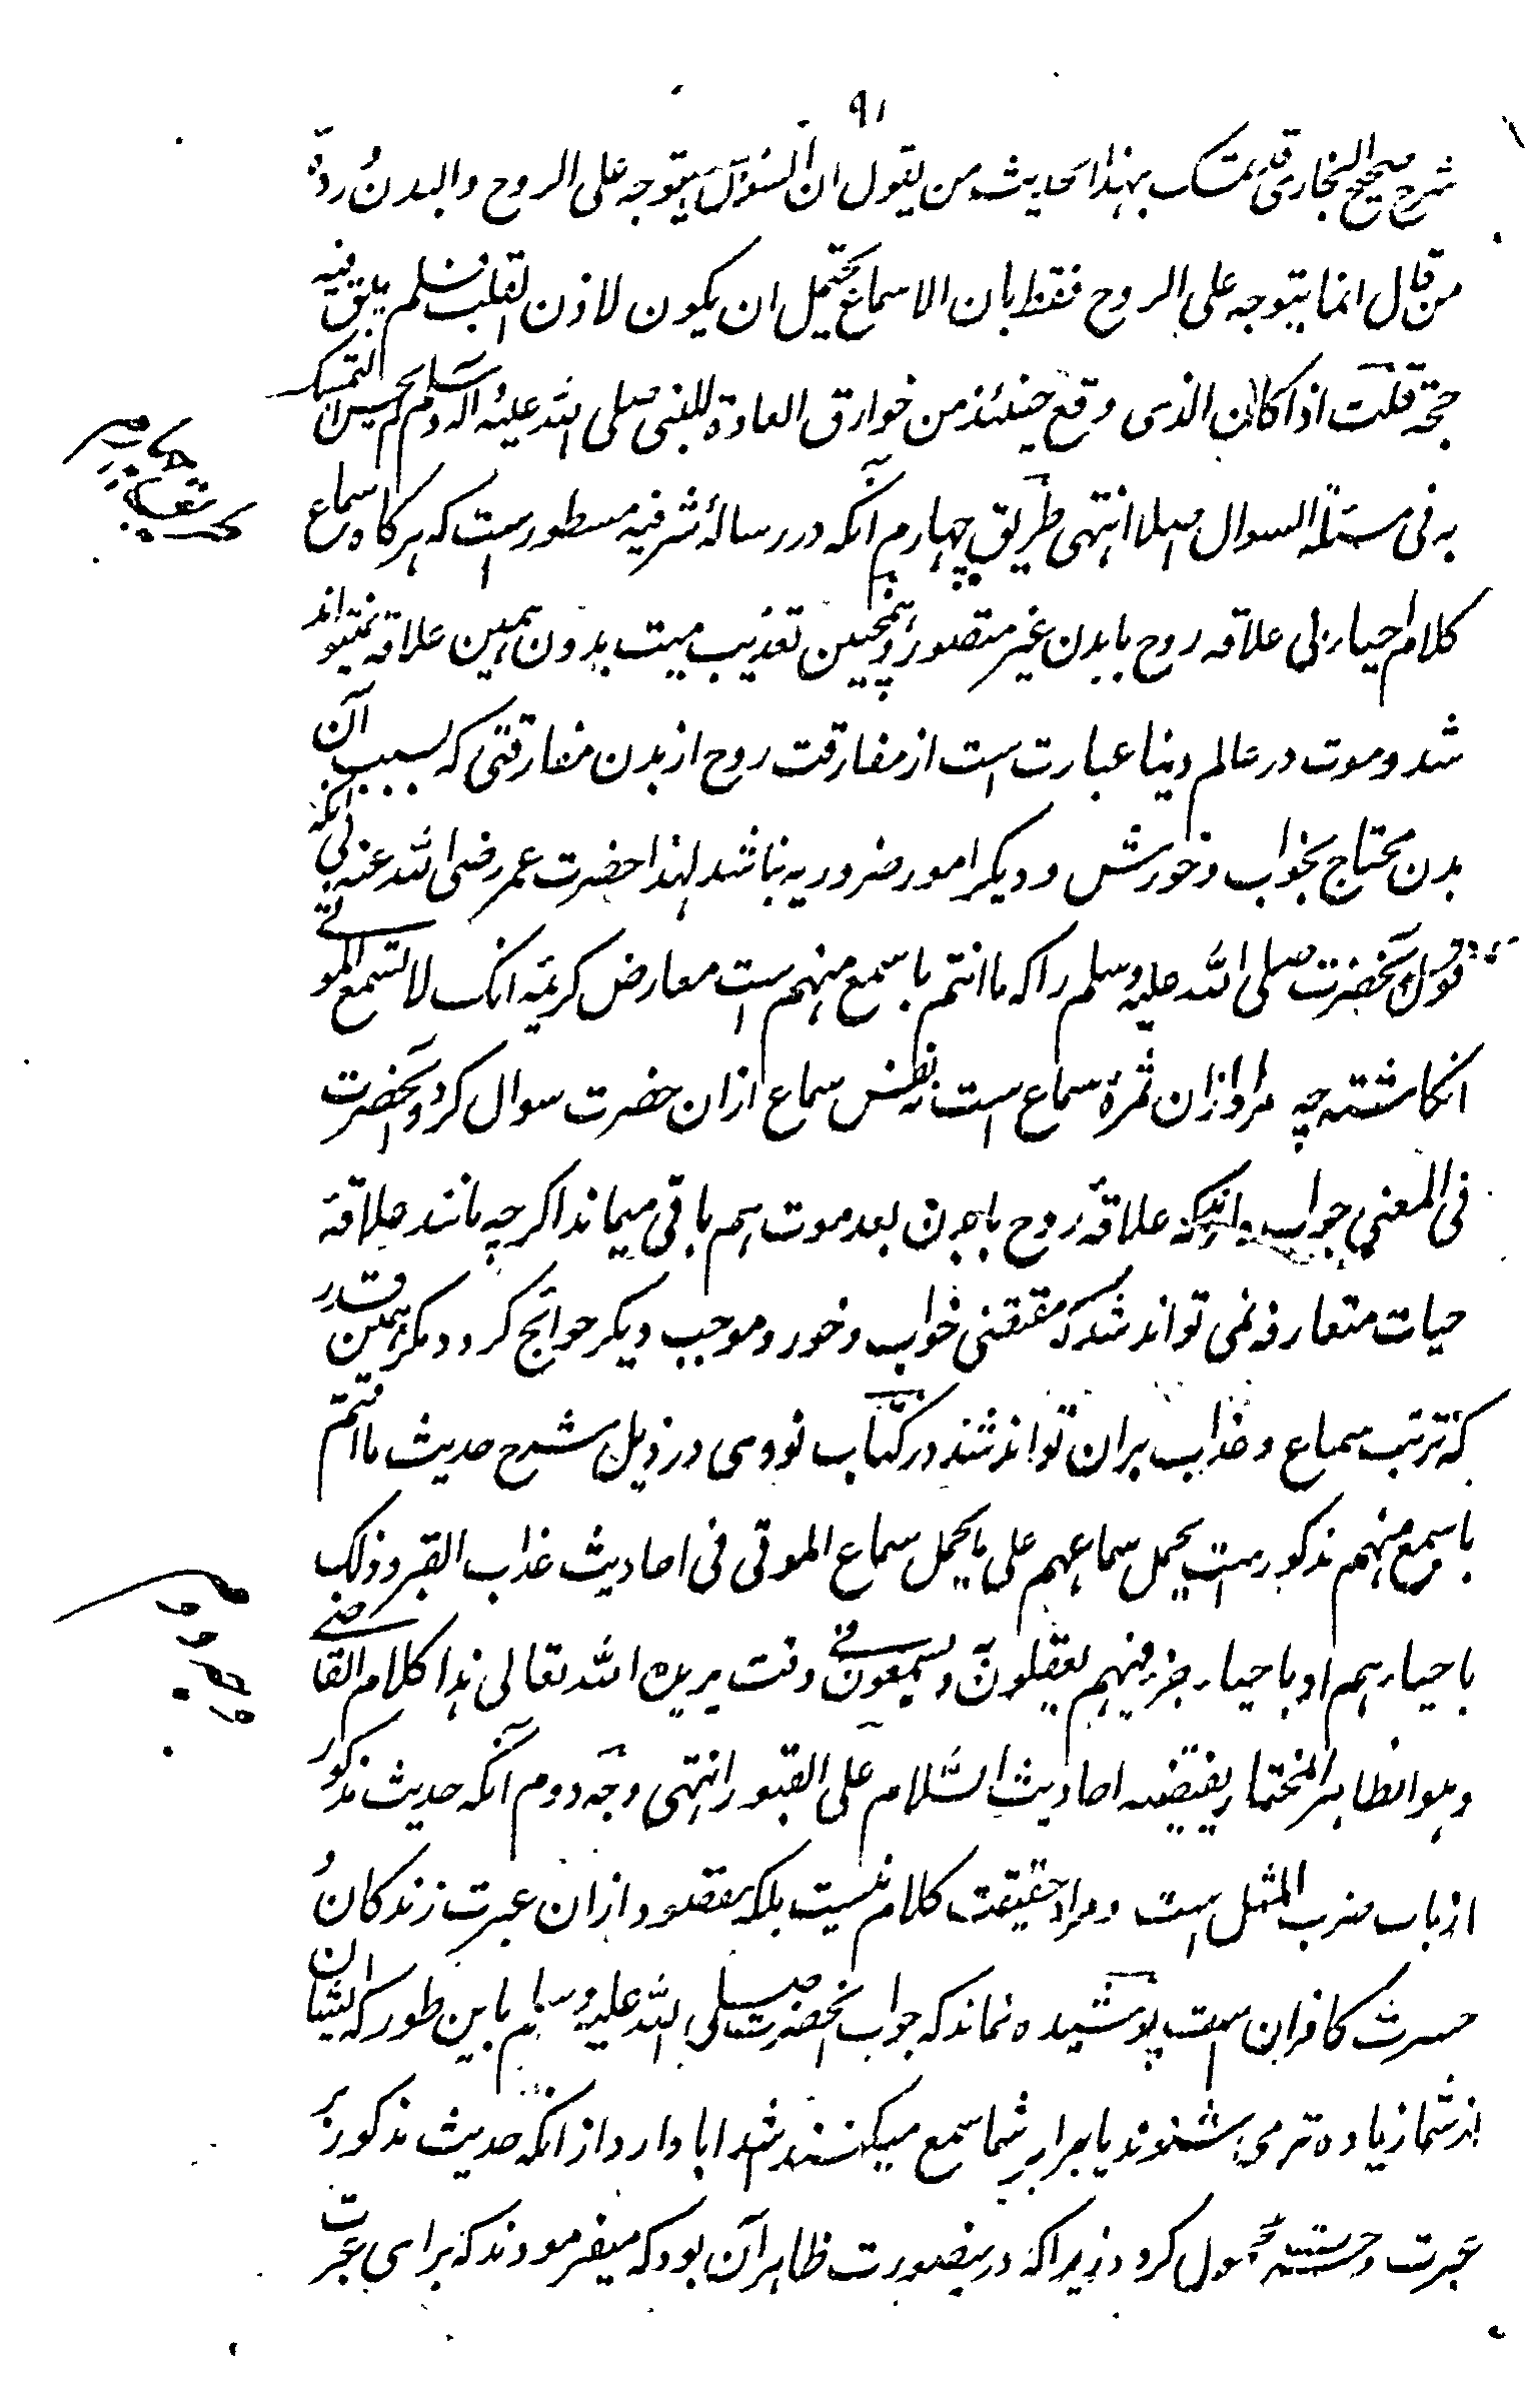 ۹۱
شرح صحیح البخاری قد تمسک بهذا الحدیث من یقول ان السؤال یتوجه علی الروح والبدن ورده
من قال انما یتوجه علی الروح فقط بان الاسماع یحتمل ان یکون لاذن القلب فلم یبق فیه
حجة قلت اذا کان الذی وقع حینئذ من خوارق العادة للنبی صلی الله علیه آله وسلم لم یحسن التمسک
به فی مسئلة السوال اصلا انتهی طریق چهارم آنکه در رسالهٔ شرفیه مسطور است که هرگاه سماع
کلام احیا بی علاقه روح با بدن غیر متصور و همچنین تعذیب میت بدون همین علاقه نمیتواند
شد و موت در عالم دنیا عبارت است از مفارقت روح از بدن مفارقتی که بسبب آن
بدن محتاج بخواب و خورش و دیگر امور ضروریه نباشد لهذا حضرت عمر رضی الله عنه بی آنکه
قول آنحضرت صلی الله علیه وسلم را که ما انتم باسمع منهم است معارض کریمه انک لا تسمع الموتی
انکاشته چه مراد ازان ثمرهٔ سماع است نه نفس سماع ازان حضرت سوال کرد و آنحضرت
فی المعنی جواب داند که علاقهٔ روح با بدن بعد موت هم باقی میماند اگرچه مانند علاقهٔ
حیات متعارفه نمی تواند شد که مقتضی خواب و خور و موجب دیگر حوائج گردد مگر همین قدر
که ترتب سماع و عذاب بران تواند شد در کتاب نووی در ذیل شرح حدیث ما انتم
باسمع منهم مذکور است یحمل سماعهم علی ما یحمل سماع الموتی فی احادیث عذاب القبر و ذلک
باحیائهم او باحیاء جزء منهم یعقلون و یسمعون فی وقت یریده الله تعالی هذا کلام القاضی
و هو الظاهر المختار یقتضیه احادیث السلام علی القبور انتهی وجه دوم آنکه حدیث مذکور
از باب ضرب المثل است و مراد حقیقت کلام نیست بلکه مقصود ازان عبرت زندگان و
حسرت کافران است پوشیده نماند که جواب آنحضرت صلی الله علیه وسلم باین طور که ایشان
از شما زیاده تر می شنوند یا برابر شما سمع میکنند شد ابا دارد از آنکه حدیث مذکور بر
عبرت و حسرت محمول گردد زیرا که درینصورت ظاهر آن بود که میفرمودند که برای عبرت
طریق چهارم
وجه دوم